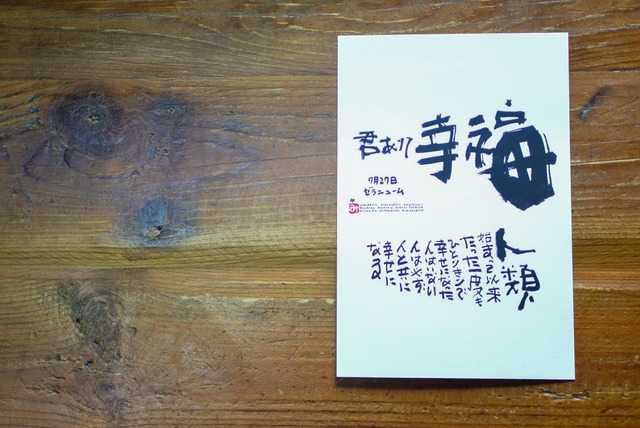 君ありて幸福
7月27日
ゼラニューム
人類
始まって以来
たった一度でも
ひとりきりで
幸せになった
人はいない
人は必ず
人と共に
幸せに
なる